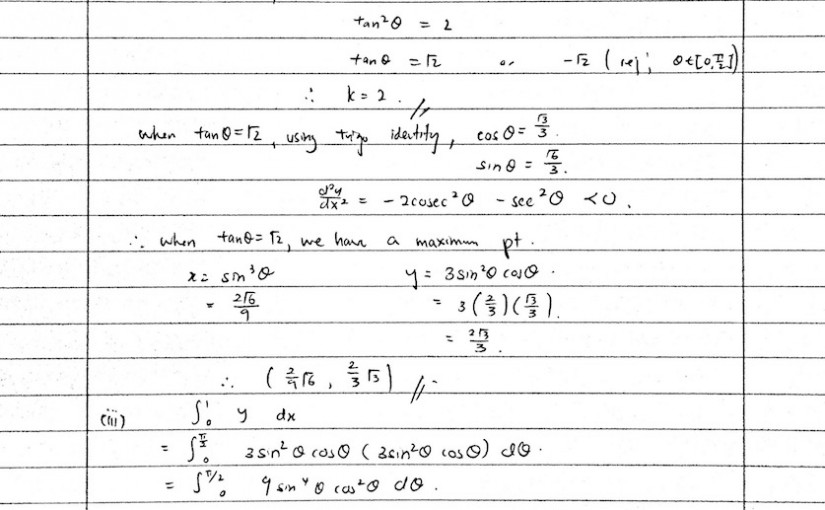 tan²θ = 2
tanθ = √2 or -√2 (rej; θ∈[0,π/2])
∴ k = 2.
when tanθ=√2, using trigo identity, cosθ = √3/3.
sinθ = √6/3.
d²y/dx² = -2cosec²θ - sec²θ <0.
∴ when tanθ=√2, we have a maximum pt.
x = sin³θ y = 3sin²θ cosθ.
= 2√6/9 = 3(2/3)(√3/3).
= 2√3/3.
∴ (2/9√6, 2/3√3)
(iii) ∫₀¹ y dx
= ∫₀^(π/2) 3sin²θ cosθ (3sin²θ cosθ) dθ.
= ∫₀^(π/2) 9sin⁴θ cos²θ dθ.